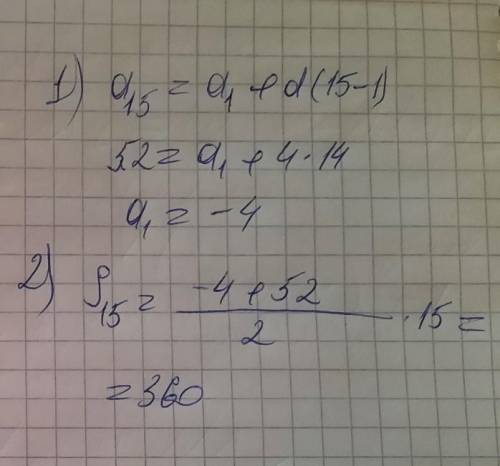 1) a₁₅ = a₁ + d(15-1)
52 = a₁ + 4·14
a₁ = -4
2) S₁₅ = (-4 + 52)/2 · 15 =
= 360